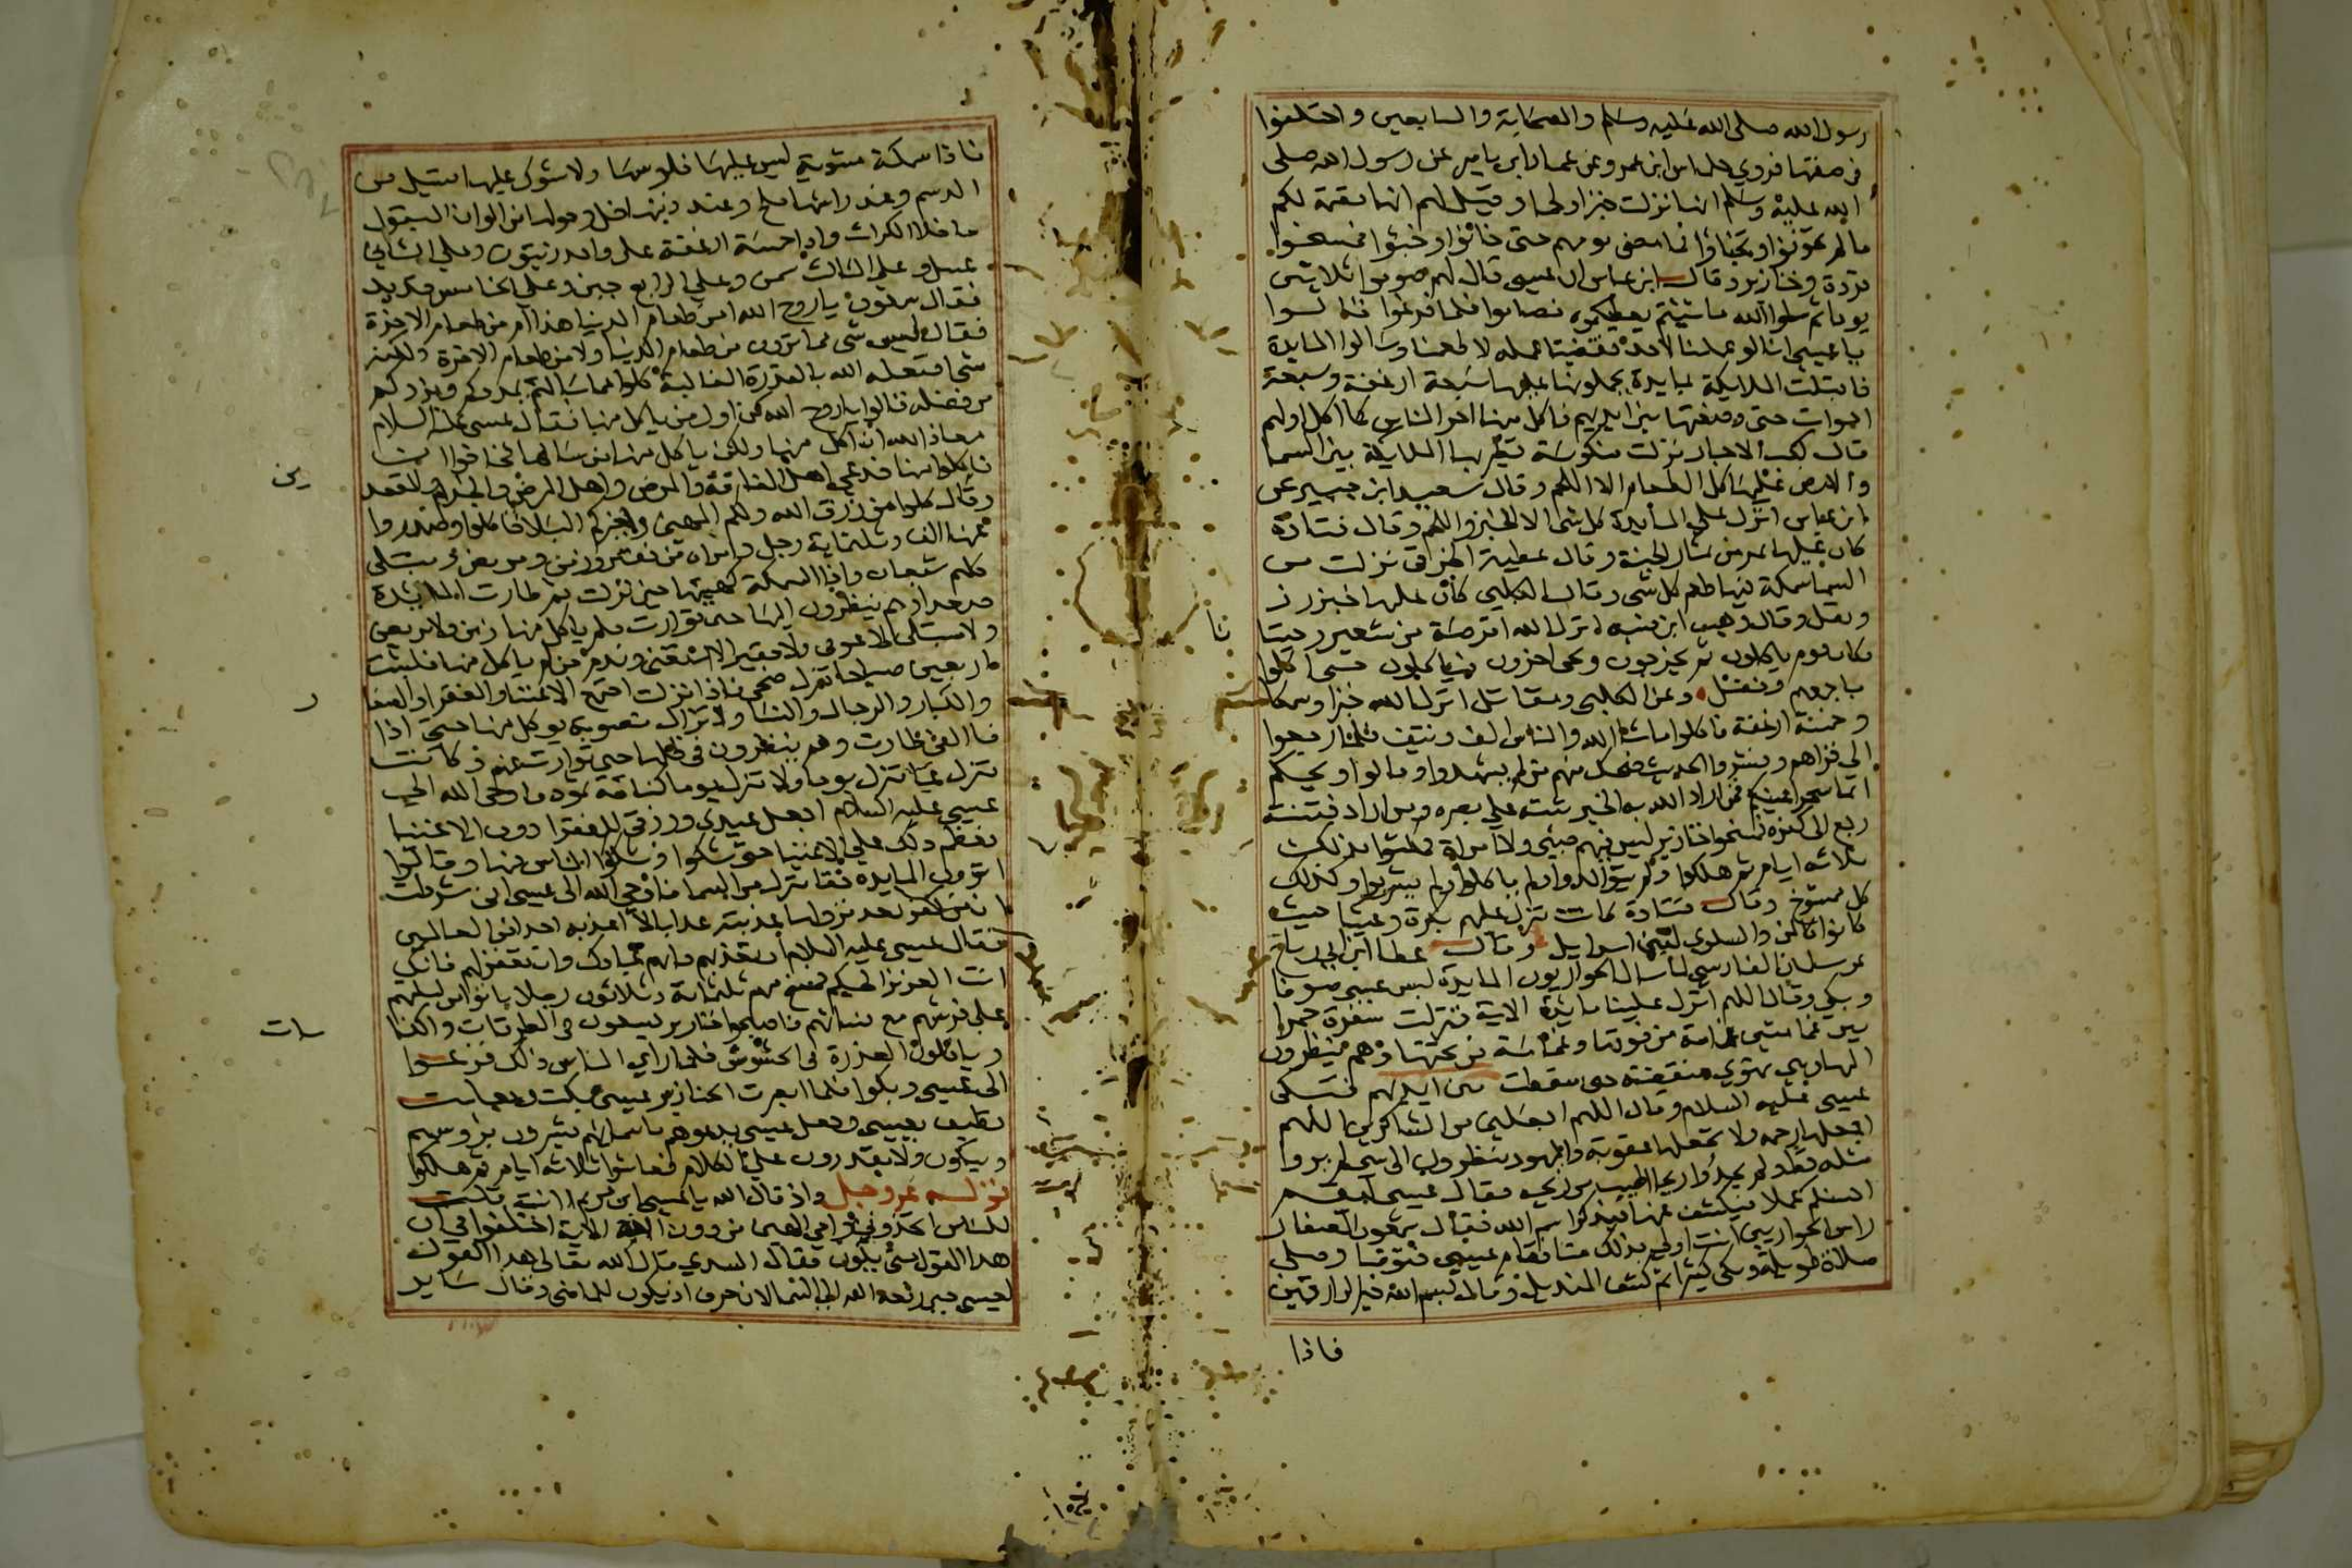 رسول الله صلى الله عليه وسلم والصحابة والتابعين واختلفوا
في صفتها فروي خلاس ابن عمرو عن عمار ابن ياسر عن رسول الله صلى
الله عليه وسلم انها نزلت خبزا ولحما وقيل لهم انها مقيمة لكم
ما لم تخونوا وتخباوا فما مضى يومهم حتى خانوا وخبئوا فمسخوا
قردة وخنازير وقال ابن عباس ان عيسى قال لهم صوموا ثلاثين
يوما ثم سلوا الله ما شئتم يعطيكموه فصاموا فلما فرغوا قالوا
يا عيسى انا لو عملنا لاحد فقضينا عمله لاطعمنا وسالوا المايدة
فاقبلت الملايكة بمايدة يحملونها عليها سبعة ارغفة وسبعة
احوات حتى وضعتها بين ايديهم فاكل منها اخر الناس كما اكل اولهم
قال كعب الاحبار نزلت منكوسة تطير بها الملايكة بين السما
والارض عليها كل الطعام الا اللحم وقال سعيد ابن جبير عن
ابن عباس انزل على المايدة كل شى الا الخبز واللحم وقال قتادة
كان عليها ثمر من ثمار الجنة وقال عطية العوفي نزلت من
السما سمكة فيها طعم كل شى وقال الكلبي كان عليها خبز رز
وبقل وقال وهب ابن منبه انزل الله اقرصة من شعير وحيتانا
فكان قوم ياكلون ثم يخرجون ويجى اخرون فياكلون حتى اكلوا
باجمعهم وفضل وعن الكلبي ومقاتل انزل الله خبزا وسمكا
وخمسة ارغفة فاكلوا ما شا الله والناس الف ونيف فلما رجعوا
الى قراهم ونشروا الحديث ضحك منهم من لم يشهد وقالوا ويحكم
انما سحر اعينكم فمن اراد الله به الخير ثبته على بصيرة ومن اراد فتنته
رجع الى كفره فمسخوا خنازير ليس فيهم صبي ولا امراة فمكثوا بذلك
ثلاثة ايام ثم هلكوا ولم يتوالدوا ولم ياكلوا ولم يشربوا وكذلك
كل ممسوخ وقال قتادة كانت تنزل عليهم بكرة وعشيا حيث
كانوا كالمن والسلوى لبني اسرايل وقال عطا ابن ابي رباح
عن سلمان الفارسي لما سال الحواريون المايدة لبس عيسى صوفا
وبكى وقال اللهم انزل علينا مايدة الاية فنزلت سفرة حمرا
بين غمامتين غمامة من فوقها وغمامة من تحتها وهم ينظرون
اليها وهي تهوي منقضة حتى سقطت بين ايديهم فبكى
عيسى عليه السلام وقال اللهم اجعلني من الشاكرين اللهم
اجعلها رحمة ولا تجعلها عقوبة واليهود ينظرون الى شى لم يروا
مثله قط ولم يجدوا ريحا اطيب من ريحه فقال عيسى ليقم
احسنكم عملا فيكشف عنها فيذكر اسم الله فقال شمعون الصفار
راس الحواريين انت اولى بذلك منا فقام عيسى فتوضا وصلى
صلاة طويلة وبكى كثيرا ثم كشف المنديل وقال بسم الله خير الرازقين
فاذا
فاذا سمكة مشوية ليس عليها فلوسها ولا شوك عليها تسيل من
الدسم وعند راسها ملح وعند ذنبها خل وحولها من الوان البقول
ما خلا الكراث واذا خمسة ارغفة على واحد زيتون وعلى الثاني
عسل وعلى الثالث سمن وعلى الرابع جبن وعلى الخامس قديد
فقال شمعون يا روح الله امن طعام الدنيا هذا ام من طعام الاخرة
فقال ليس شى مما ترون من طعام الدنيا ولا من طعام الاخرة ولكنه
شى افتعله الله بالقدرة الغالبة كلوا مما سالتم يمددكم ويزدكم
من فضله قالوا يا روح الله كن اول من ياكل منها فقال عيسى عليه السلام
معاذ الله ان اكل منها ولكن ياكل منها من سالها فخافوا ان
ياكلوا منها فدعى اهل الفاقة والمرض واهل البرص والجذام والمقعدين
وقال كلوا من رزق الله ولكم المهنى ولغيركم البلا فاكلوا وصدروا
عنها الف وثلثماية رجل وامراة من فقير وزمن ومريض ومبتلى
كلهم شبعان واذا السمكة كهيئتها حين نزلت ثم طارت المايدة
صعدا وهم ينظرون اليها حتى توارت فلم ياكل منها زمن ولا مريض
ولا مبتلى الا عوفي ولا فقير الا استغنى وندم من لم ياكل منها فلبثت
اربعين صباحا تنزل ضحى فاذا نزلت اجتمع الاغنيا والفقرا والصغار
والكبار والرجال والنسا ولا تزال منصوبة يوكل منها حتى اذا
فا الفى طارت وهم ينظرون في ظلها حتى توارت عنهم وكانت
تنزل غبا تنزل يوما ولا تنزل يوما كناقة ثمود فاوحى الله الى
عيسى عليه السلام اجعل مايدتي ورزقي للفقرا دون الاغنيا
فعظم ذلك على الاغنيا حتى شكوا وشككوا الناس فيها وقالوا
اترون المايدة حقا تنزل من السما فاوحى الله الى عيسى اني شرطت
ان من كفر بعد نزولها عذبته عذابا لا اعذبه احدا من العالمين
فقال عيسى عليه السلام ان تعذبهم فانهم عبادك وان تغفر لهم فانك
انت العزيز الحكيم فمسخ منهم ثلثماية وثلاثون رجلا باتوا من ليلتهم
على فرشهم مع نسائهم فاصبحوا خنازير يسعون في الطرقات والكناسات
وياكلون العذرة في الحشوش فلما راى الناس ذلك فزعوا
الى عيسى وبكوا فلما ابصرت الخنازير عيسى بكت وجعلت
تطيف بعيسى وجعل عيسى يدعوهم باسمائهم فيشيرون برؤسهم
ويبكون ولا يقدرون على الكلام فعاشوا ثلاثة ايام ثم هلكوا
قوله عز وجل واذ قال الله يا عيسى ابن مريم اانت قلت
للناس اتخذوني وامي الهين من دون الله الاية اختلفوا في ان
هذا القول متى يكون فقال السدي قال الله تعالى هذا القول
لعيسى حين رفعه الله الى السما لان حرف اذ يكون للماضي وقال ساير